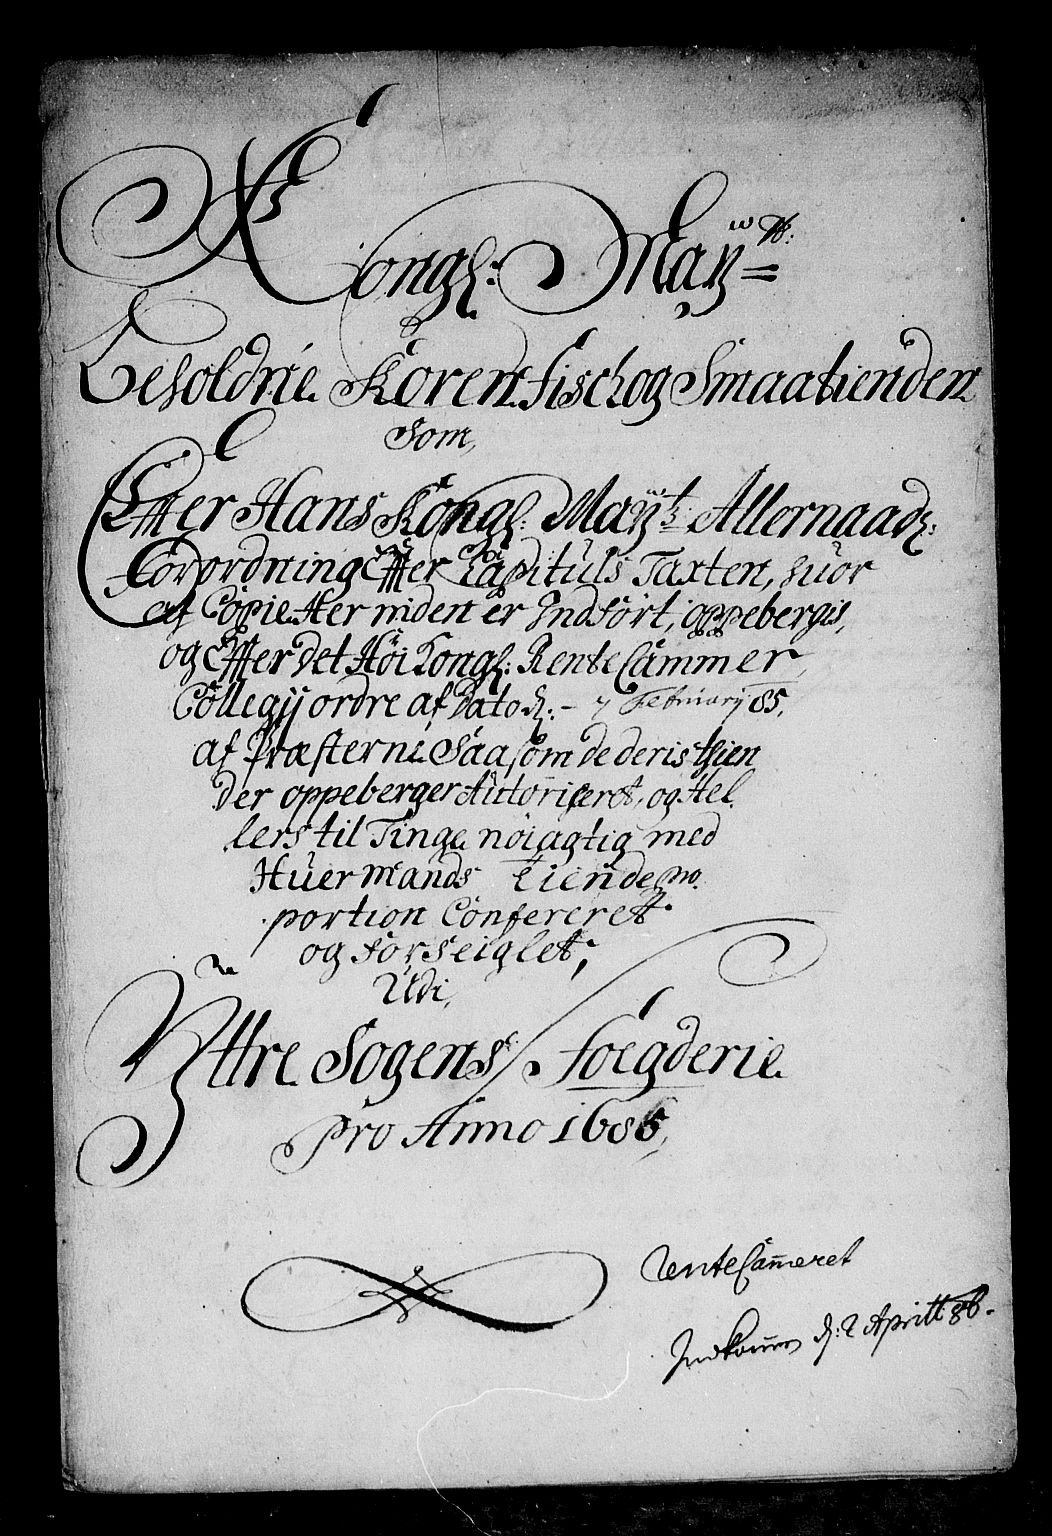 Kongl: Maÿtz:
Besoldnie Koren Fisch og Smaatienden
Som,
Effter Hans Kongl: Maÿtz: Allernaadl:
Forordning Effter Capituls Taxten, huor
af Copie Her niden er Indført, oppebergis,
og Effter det Høi Kongl: Rente Cammer
Collegÿ ordre af Dato d: - 7 Februarÿ 85,
af Præsterne Saasom de deris thien
der oppeberger Autoriseret, og Hel
lers til Tinge nøiagtig med
Huermands Tiende pro
portion Confereret
og forseiglet;
Udi,
Ÿttre Sogens Foegderie
pro Anno 1685,
RenteCam̄eret
Indkom̄en d: 2 Aprill 86.